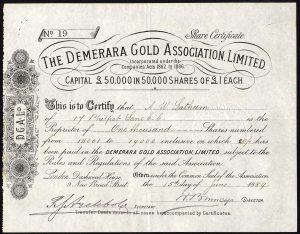 No 19
Share Certificate
THE DEMERARA GOLD ASSOCIATION, LIMITED.
Incorporated under the
Companies Acts 1862 to 1886.
CAPITAL £50,000 IN 50,000 SHARES OF £1 EACH.
D.G.A.Ld
This is to Certify that A. W. Latham
of 17 Lane E.C. is the
Proprietor of One thousand Shares numbered
from 18001 to 19000 inclusive on which
has been paid in the DEMERARA GOLD ASSOCIATION, LIMITED, subject to the
Rules and Regulations of the said Association
London, Dashwood House
9, New Broad Street
Given under the Common Seal of the Association
the 15th day of June 1889.
SECRETARY
DIRECTOR
Transfer Deeds must in all cases be accompanied by Certificates.